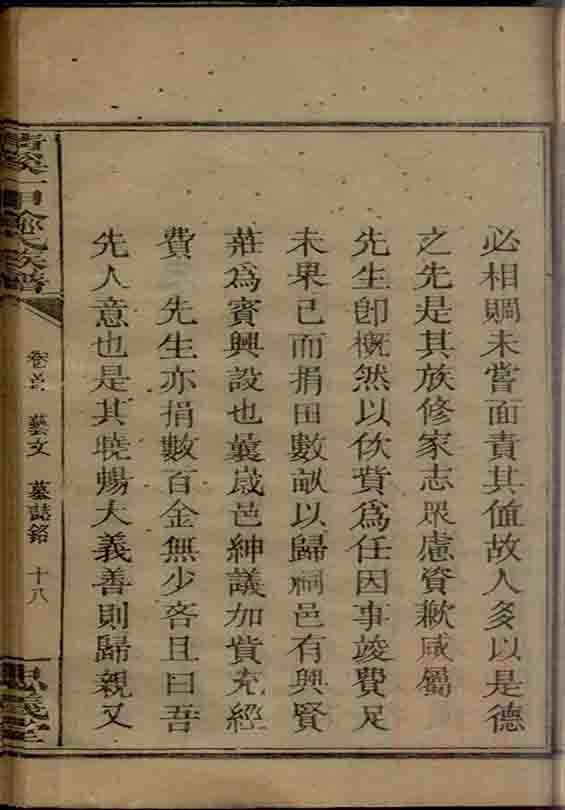 必相賙未嘗面責其値故人多以是德
之先是其族修家志眾慮資歉咸屬
先生卽概然以佽費爲任因事竣費足
未果已而捐田數畝以歸祠邑有興賢
莊爲賓興設也曩歲邑紳議加貲充經
費 先生亦捐數百金無少吝且曰吾
先人意也是其曉暢大義善則歸親又
一甲 氏族譜
卷首 藝文 墓誌銘 十八
忠義堂